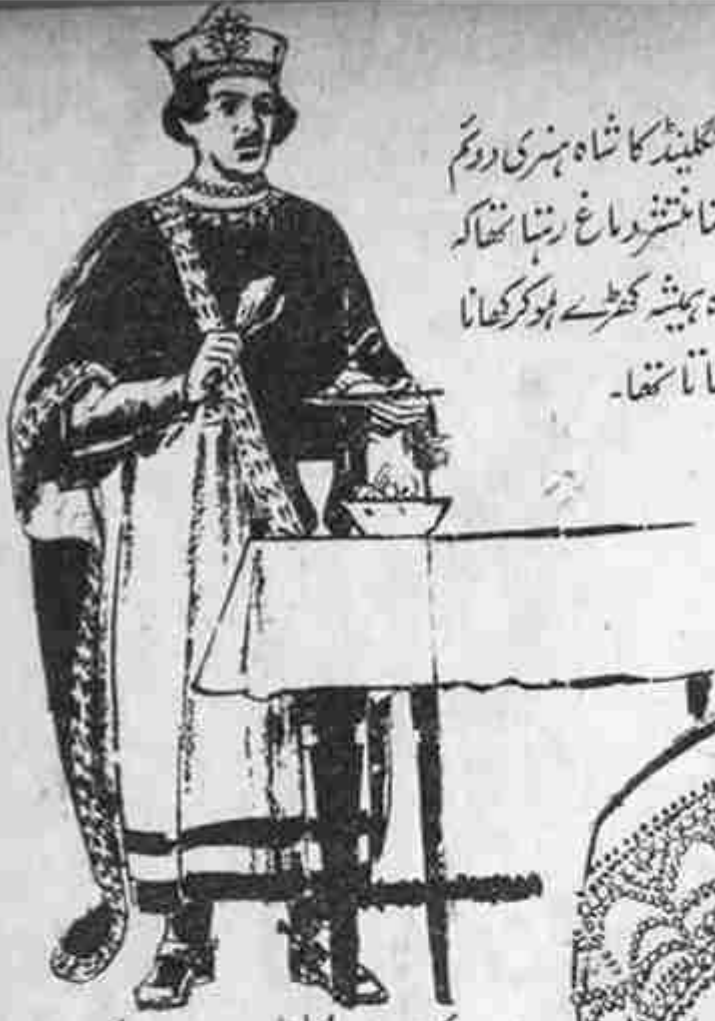 نگلینڈ کا شاہ ہنری دوئم
نا منتشر دماغ رہتا تھا کہ
ہ ہمیشہ کھڑے ہو کر کھانا
ھاتا تھا۔